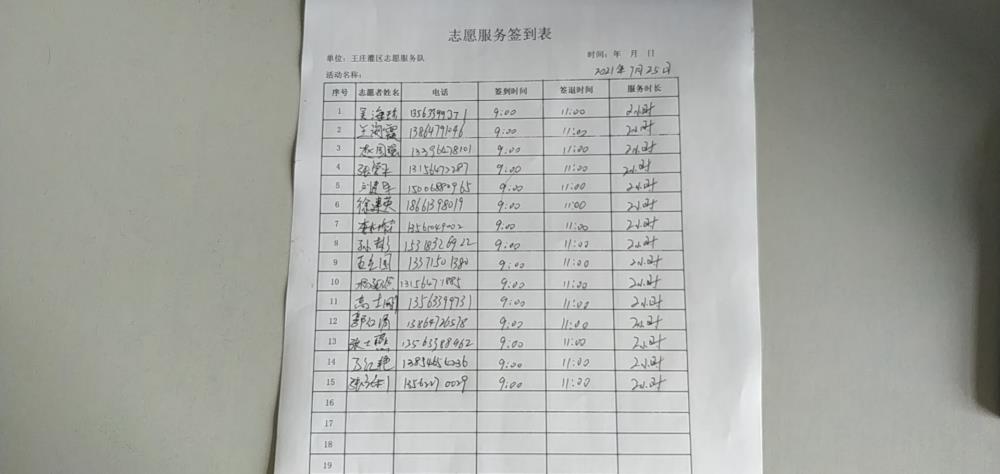 志愿服务签到表
单位：王庄灌区志愿服务队 时间：年 月 日
活动名称： 2021年7月25日
序号 志愿者姓名 电话 签到时间 签退时间 服务时长
1 13563399271 9:00 11:00 2小时
2 兰海霞 13864791046 9:00 11:00 2小时
3 13396478101 9:00 11:00 2小时
4 张荣平 13156472287 9:00 11:00 2小时
5 15006880965 9:00 11:00 2小时
6 徐建英 18661398019 9:00 11:00 2小时
7 13561049002 9:00 11:00 2小时
8 15318326922 9:00 11:00 2小时
9 13371501380 9:00 11:00 2小时
10 13156471885 9:00 11:00 2小时
11 13563399731 9:00 11:00 2小时
12 13864726578 9:00 11:00 2小时
13 张士燕 13563388462 9:00 11:00 2小时
14 万红艳 13854656236 9:00 11:00 2小时
15 13562270029 9:00 11:00 2小时
16
17
18
19